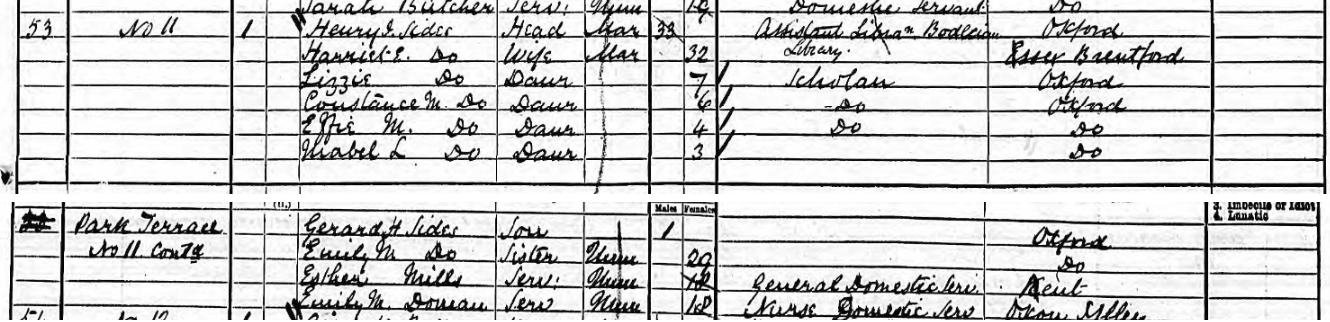 Sarah Butcher Serv: Unm 19 Domestic Servant Do
53 No 11 1 Henry J. Sides Head Mar 33 Assistant Libran. Bodleian Oxford
Harriet E. Do Wife Mar 32 Library. Essex Brentford
Lizzie Do Daur 7 Scholar Oxford
Constance M. Do Daur 6 Do Oxford
Effie M. Do Daur 4 Do Do
Mabel L Do Daur 3 Do
Males Females 3. Imbecile or Idiot
4. Lunatic
Park Terrace Gerard H Sides Son 1 Oxford
No 11 Contd Emily M Do Sister Unm 29 Do
Esther Mills Serv: Unm 18 General Domestic Serv. Kent
Emily M. Serv Unm 18 Nurse Domestic Serv Oxon